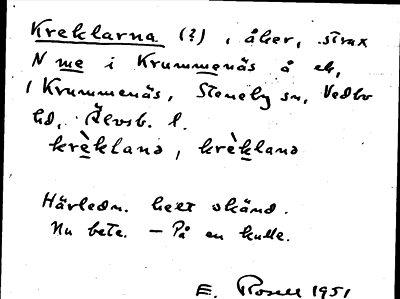 Kreklarna (?), åker, strax
N me i Krummenäs å ek,
1 Krummenäs, Steneby sn, Vedbo
hd, Älvsb. l.
krèkland, krèkland
Härledn. helt okänd.
Nu bete. – På en kulle.
E. Rosell 1951